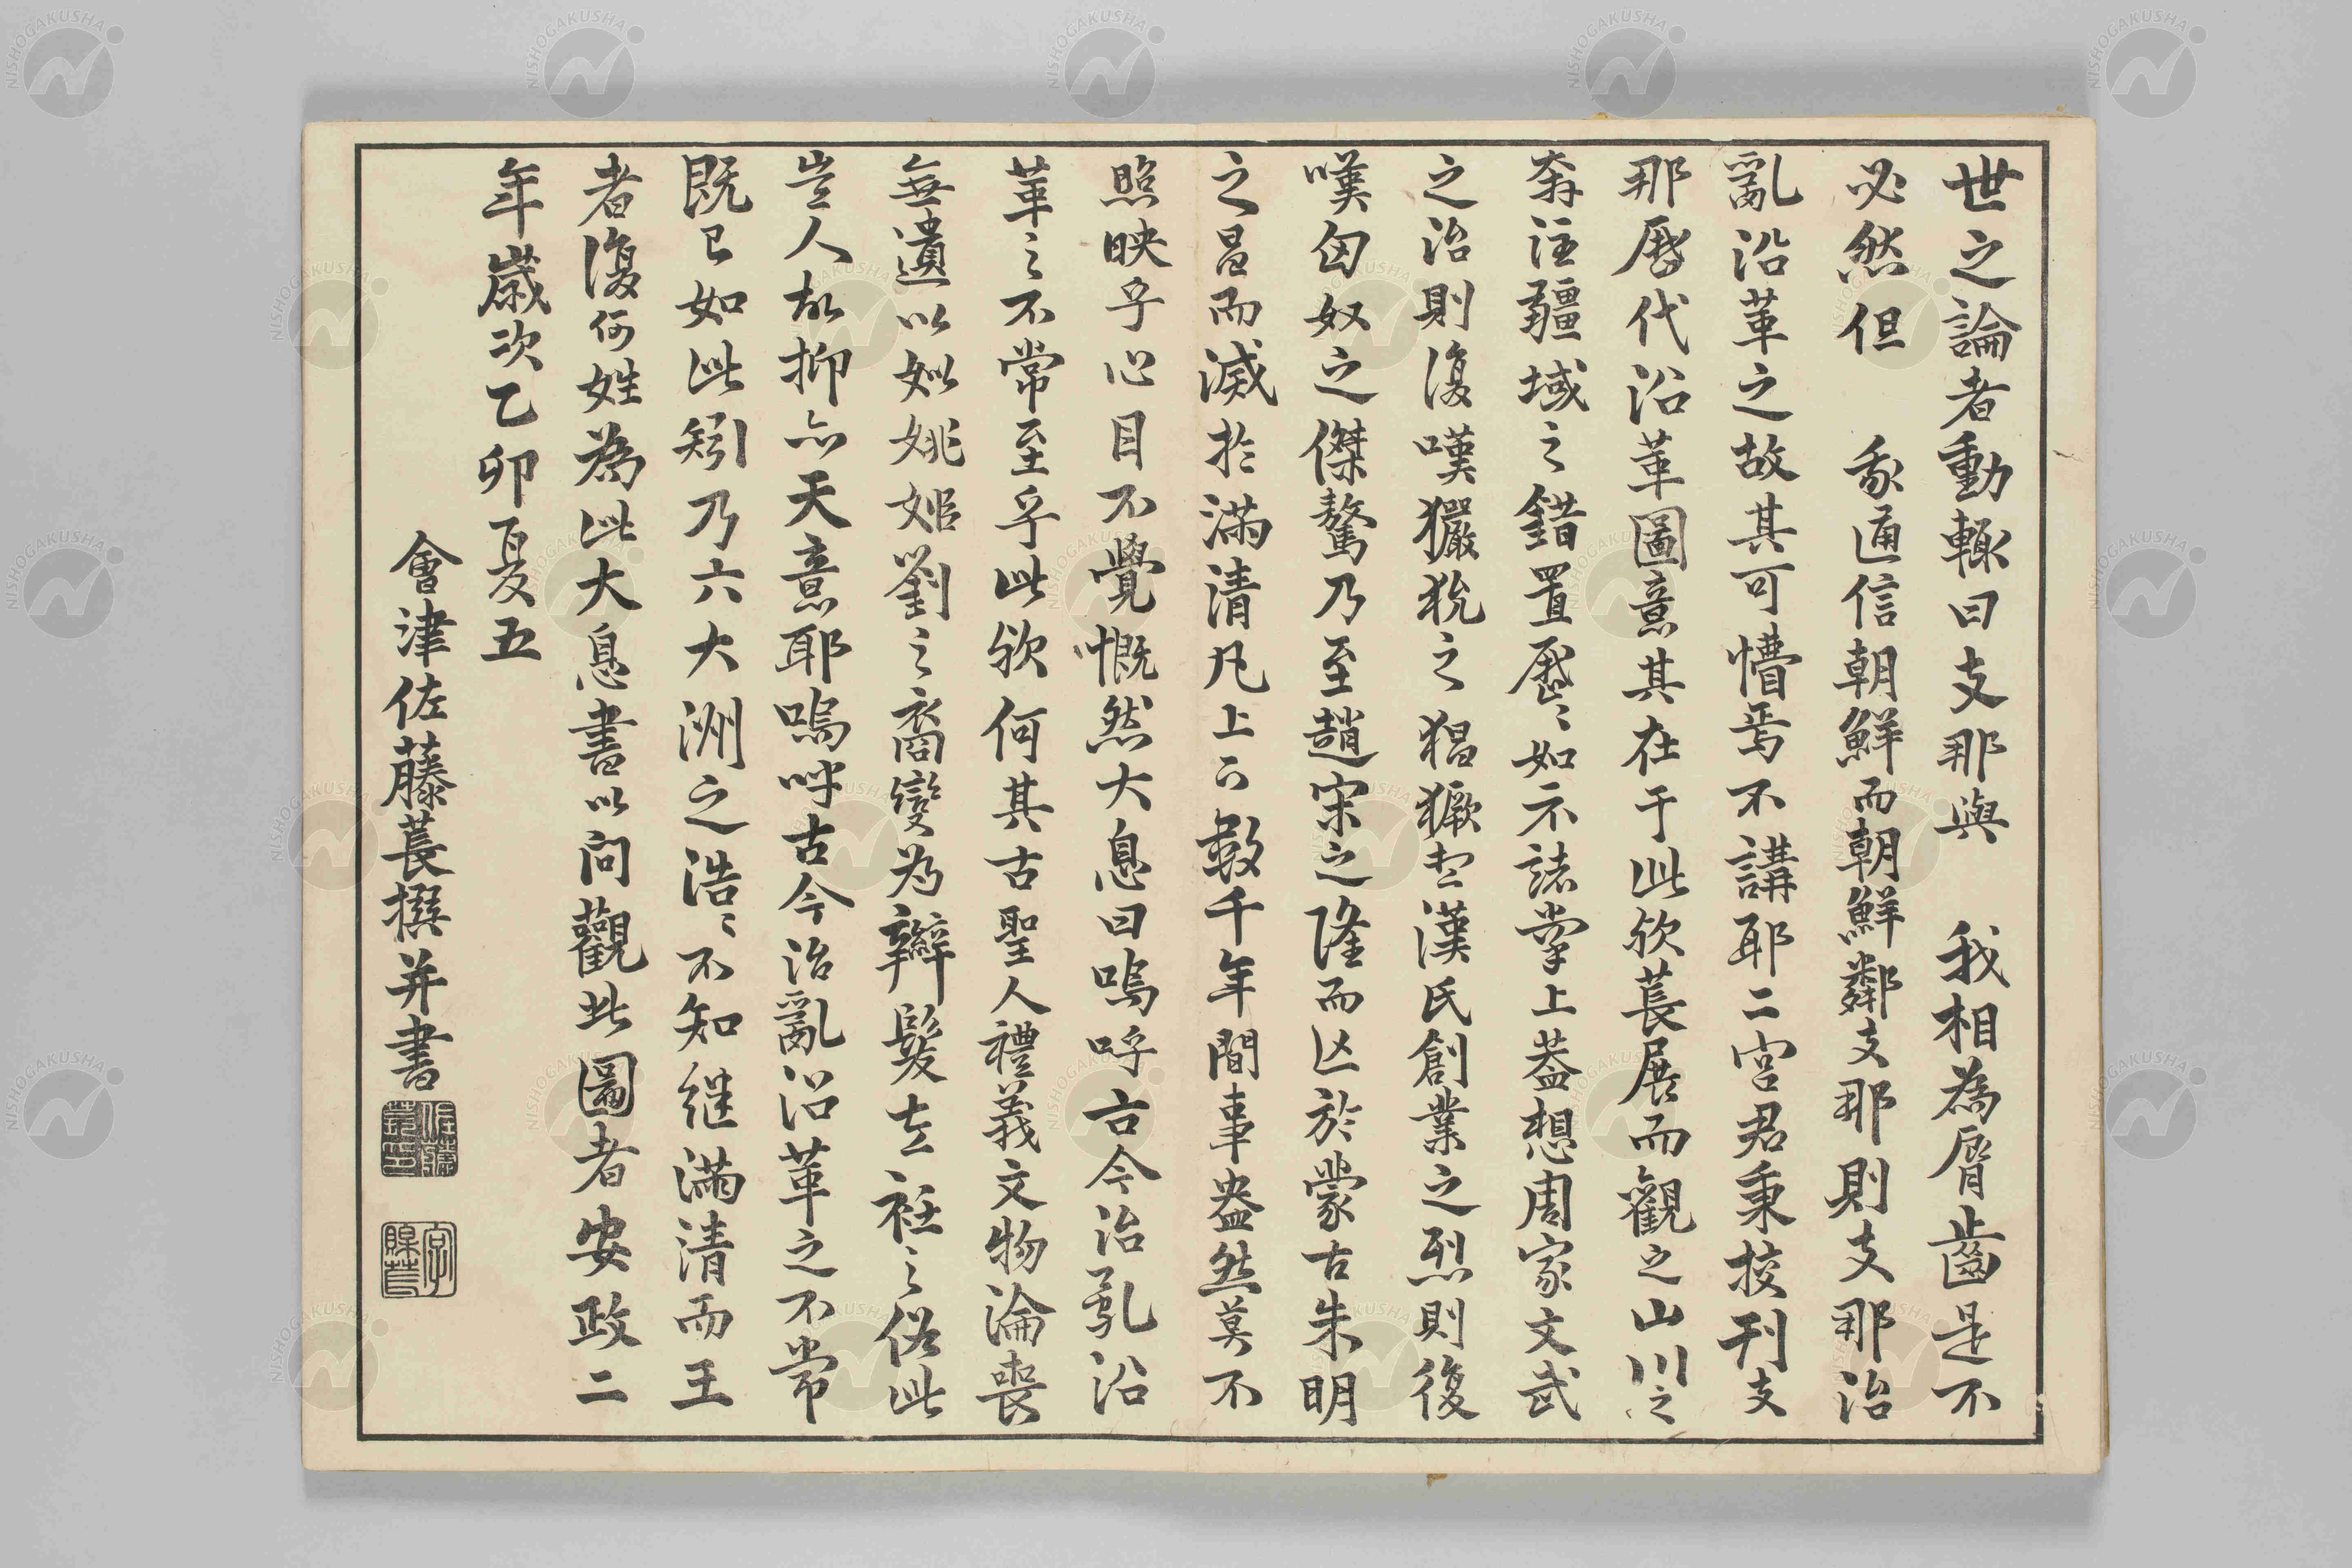 世之論者動輙曰支那與　我相為脣齒是不
必然但　我通信朝鮮而朝鮮鄰支那則支那治
亂沿革之故其可懵焉不講耶二宮君秉挍刊支
那歷代沿革圖意其在于此欤萇展而觀之山川之
奔注疆域之錯置歷〻如示諸掌上葢想周家文武
之治則復嘆玁狁之猖獗想漢氏創業之烈則復
嘆匈奴之傑驁乃至趙宋之隆而亾於蒙古朱明
之昌而滅於滿清凡上下數千年間事盎然莫不
照映乎心目不覺慨然大息曰嗚呼古今治亂沿
革之不常至乎此欤何其古聖人禮義文物淪喪
無遺以姒姚姬劉之裔變為辮髮左衽之俗此
豈人故抑亦天意耶嗚呼古今治亂沿革之不常
既已如此矧乃六大洲之浩〻不知継滿清而王
者復何姓為此大息書以問觀此圖者安政二
年歲次乙卯夏五
會津佐藤萇撰并書
NISHOGAKUSHA